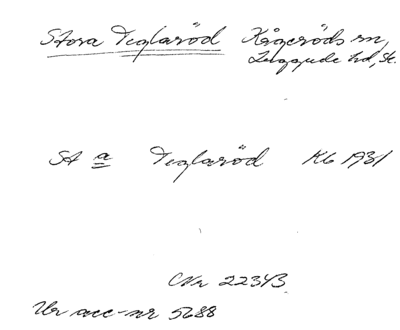 Stora Teglaröd Kågeröds sn,
Luggude hd, Sk.
St a Teglaröd Kb 1931
CNr 22343.
Ur acc-nr 5688